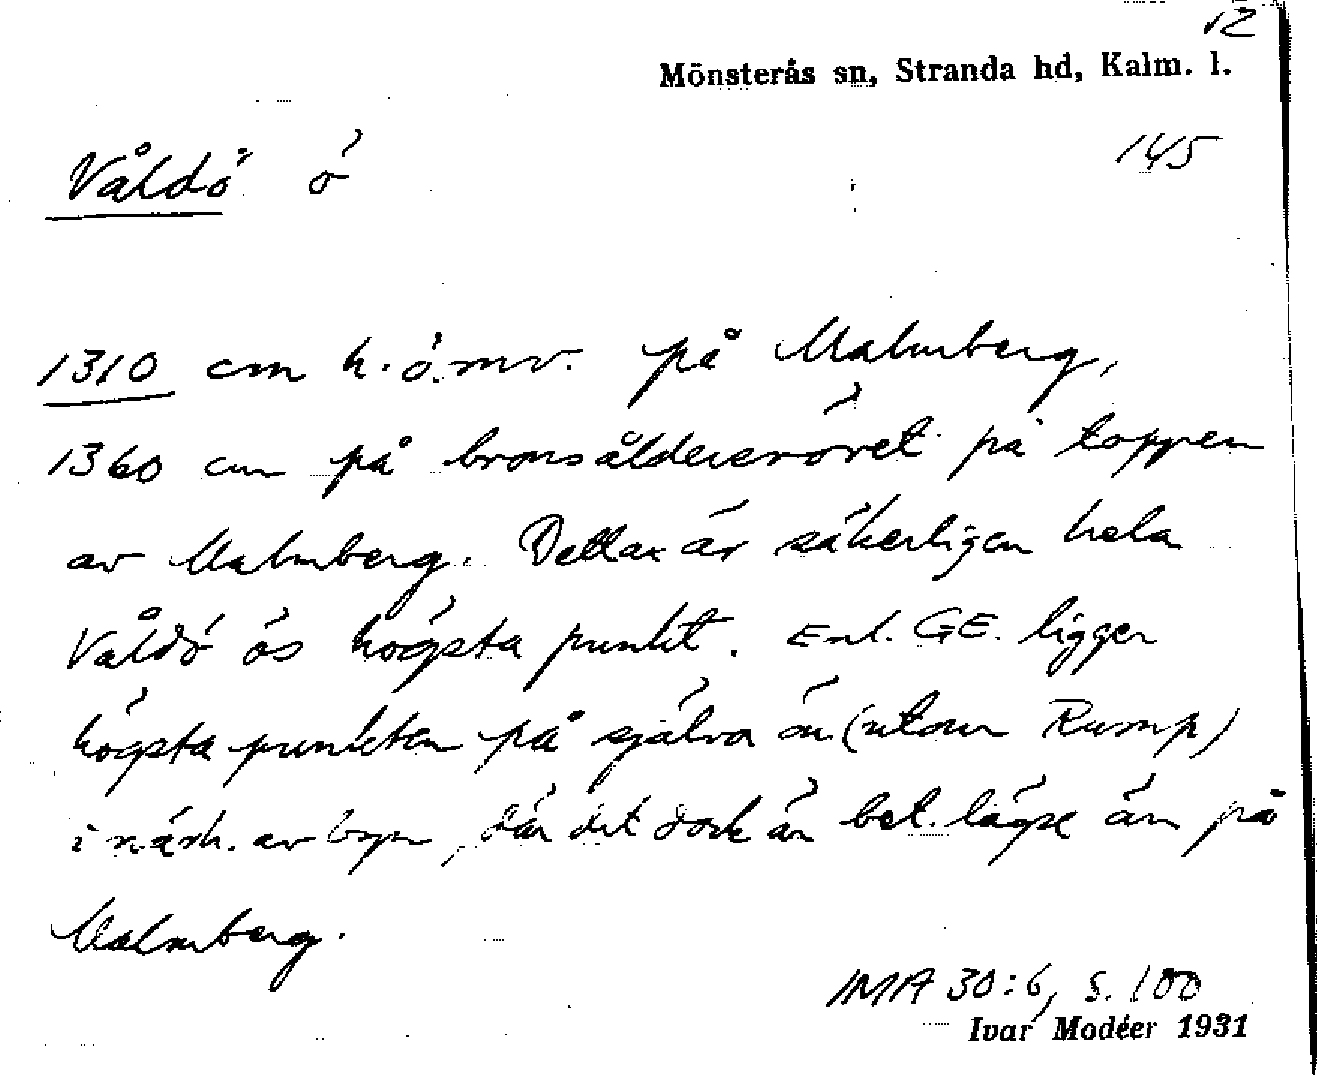 12
Mönsterås sn, Stranda hd, Kalm. l.
145
Våldö ö
1310 cm h.ö.mv. på Malmberg,
1360 cm på bronsåldersröret på toppen
av Malmberg. Detta är säkerligen hela
Våldö ös högsta punkt. Enl. GE. ligger
högsta punkten på själva ön (utom Rump)
i närh. av byn, där det dock är bet. lägre än på
Malmberg.
IMA 30:6, s. 100
Ivar Modéer 1931